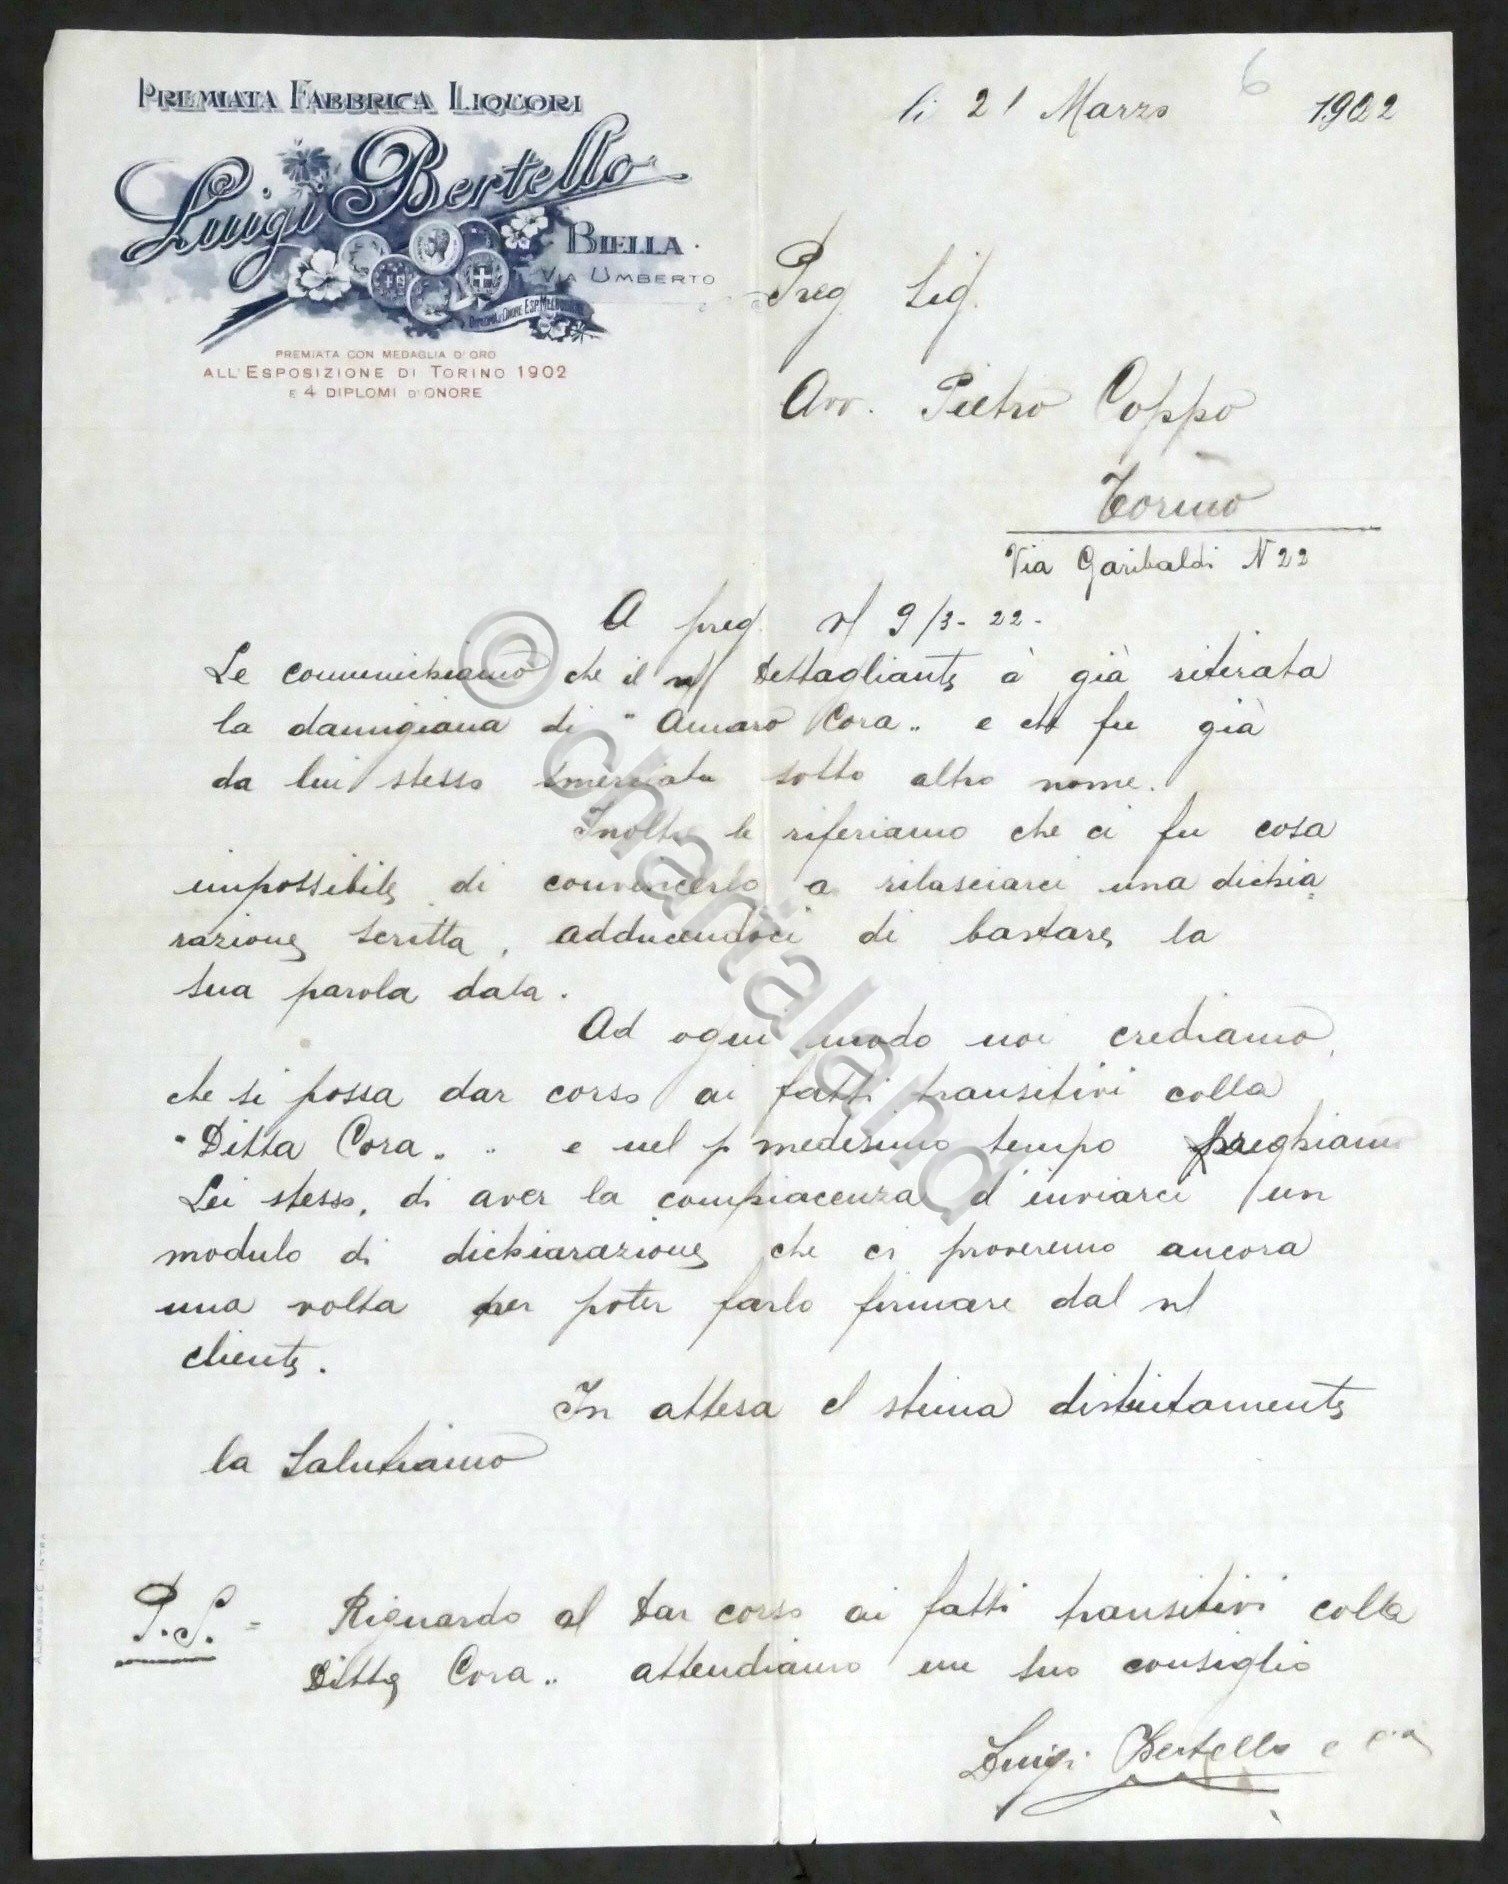 PREMIATA FABBRICA LIQUORI
Luigi Bertello
BIELLA
VIA UMBERTO
PREMIATA CON MEDAGLIA D'ORO
ALL'ESPOSIZIONE DI TORINO 1902
E 4 DIPLOMI D'ONORE
6
li 21 Marzo 1922
Preg Sig.
Avv. Pietro Coppo
Torino
Via Garibaldi N 22
A preg. v/ 9/3-22-
Le comunichiamo che il n/ dettagliante à già ritirata
la damigiana di "Amaro Cora" e che fu già
da lui stesso smerciata sotto altro nome.
Inoltre le riferiamo che ci fu cosa
impossibile di convincerlo a rilasciarci una dichia
razione scritta, adducendoci di bastare la
sua parola data.
Ad ogni modo noi crediamo,
che si possa dar corso ai fatti transitivi colla
"Ditta Cora" e nel medesimo tempo preghiamo
Lei stesso, di aver la compiacenza d'inviarci un
modulo di dichiarazione che ci proveremo ancora
una volta per poter farlo firmare dal n/
cliente.
In attesa e stima distintamente
la Salutiamo
P.S. = Riguardo al dar corso ai fatti transitivi colla
Ditta Cora" attendiamo un suo consiglio
Luigi Bertello e Cia
© chartaland